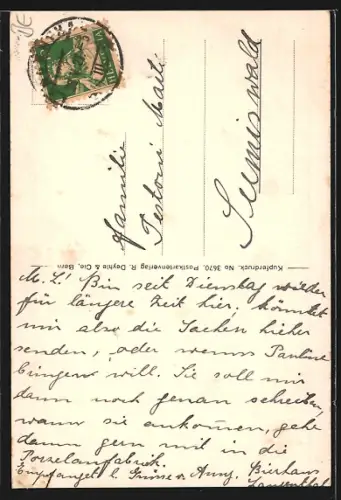 Familie
Testoni Maeli
Sumiswald
Kupferdruck. No 3670. Postkartenverlag R. Deyhle & Cie, Bern
M. L! Bin seit Dienstag wieder
für längere Zeit hier. könntet
mir also die Sachen hieher
senden, oder wenns Pauline
bringen will. Sie soll mir
dann noch genau schreiben,
wann sie ankommen, gehe
dann gern mit in die
Porzelanfabrik.
Empfanget h. Grüsse v. Anny. Bierhaus
Langenthal